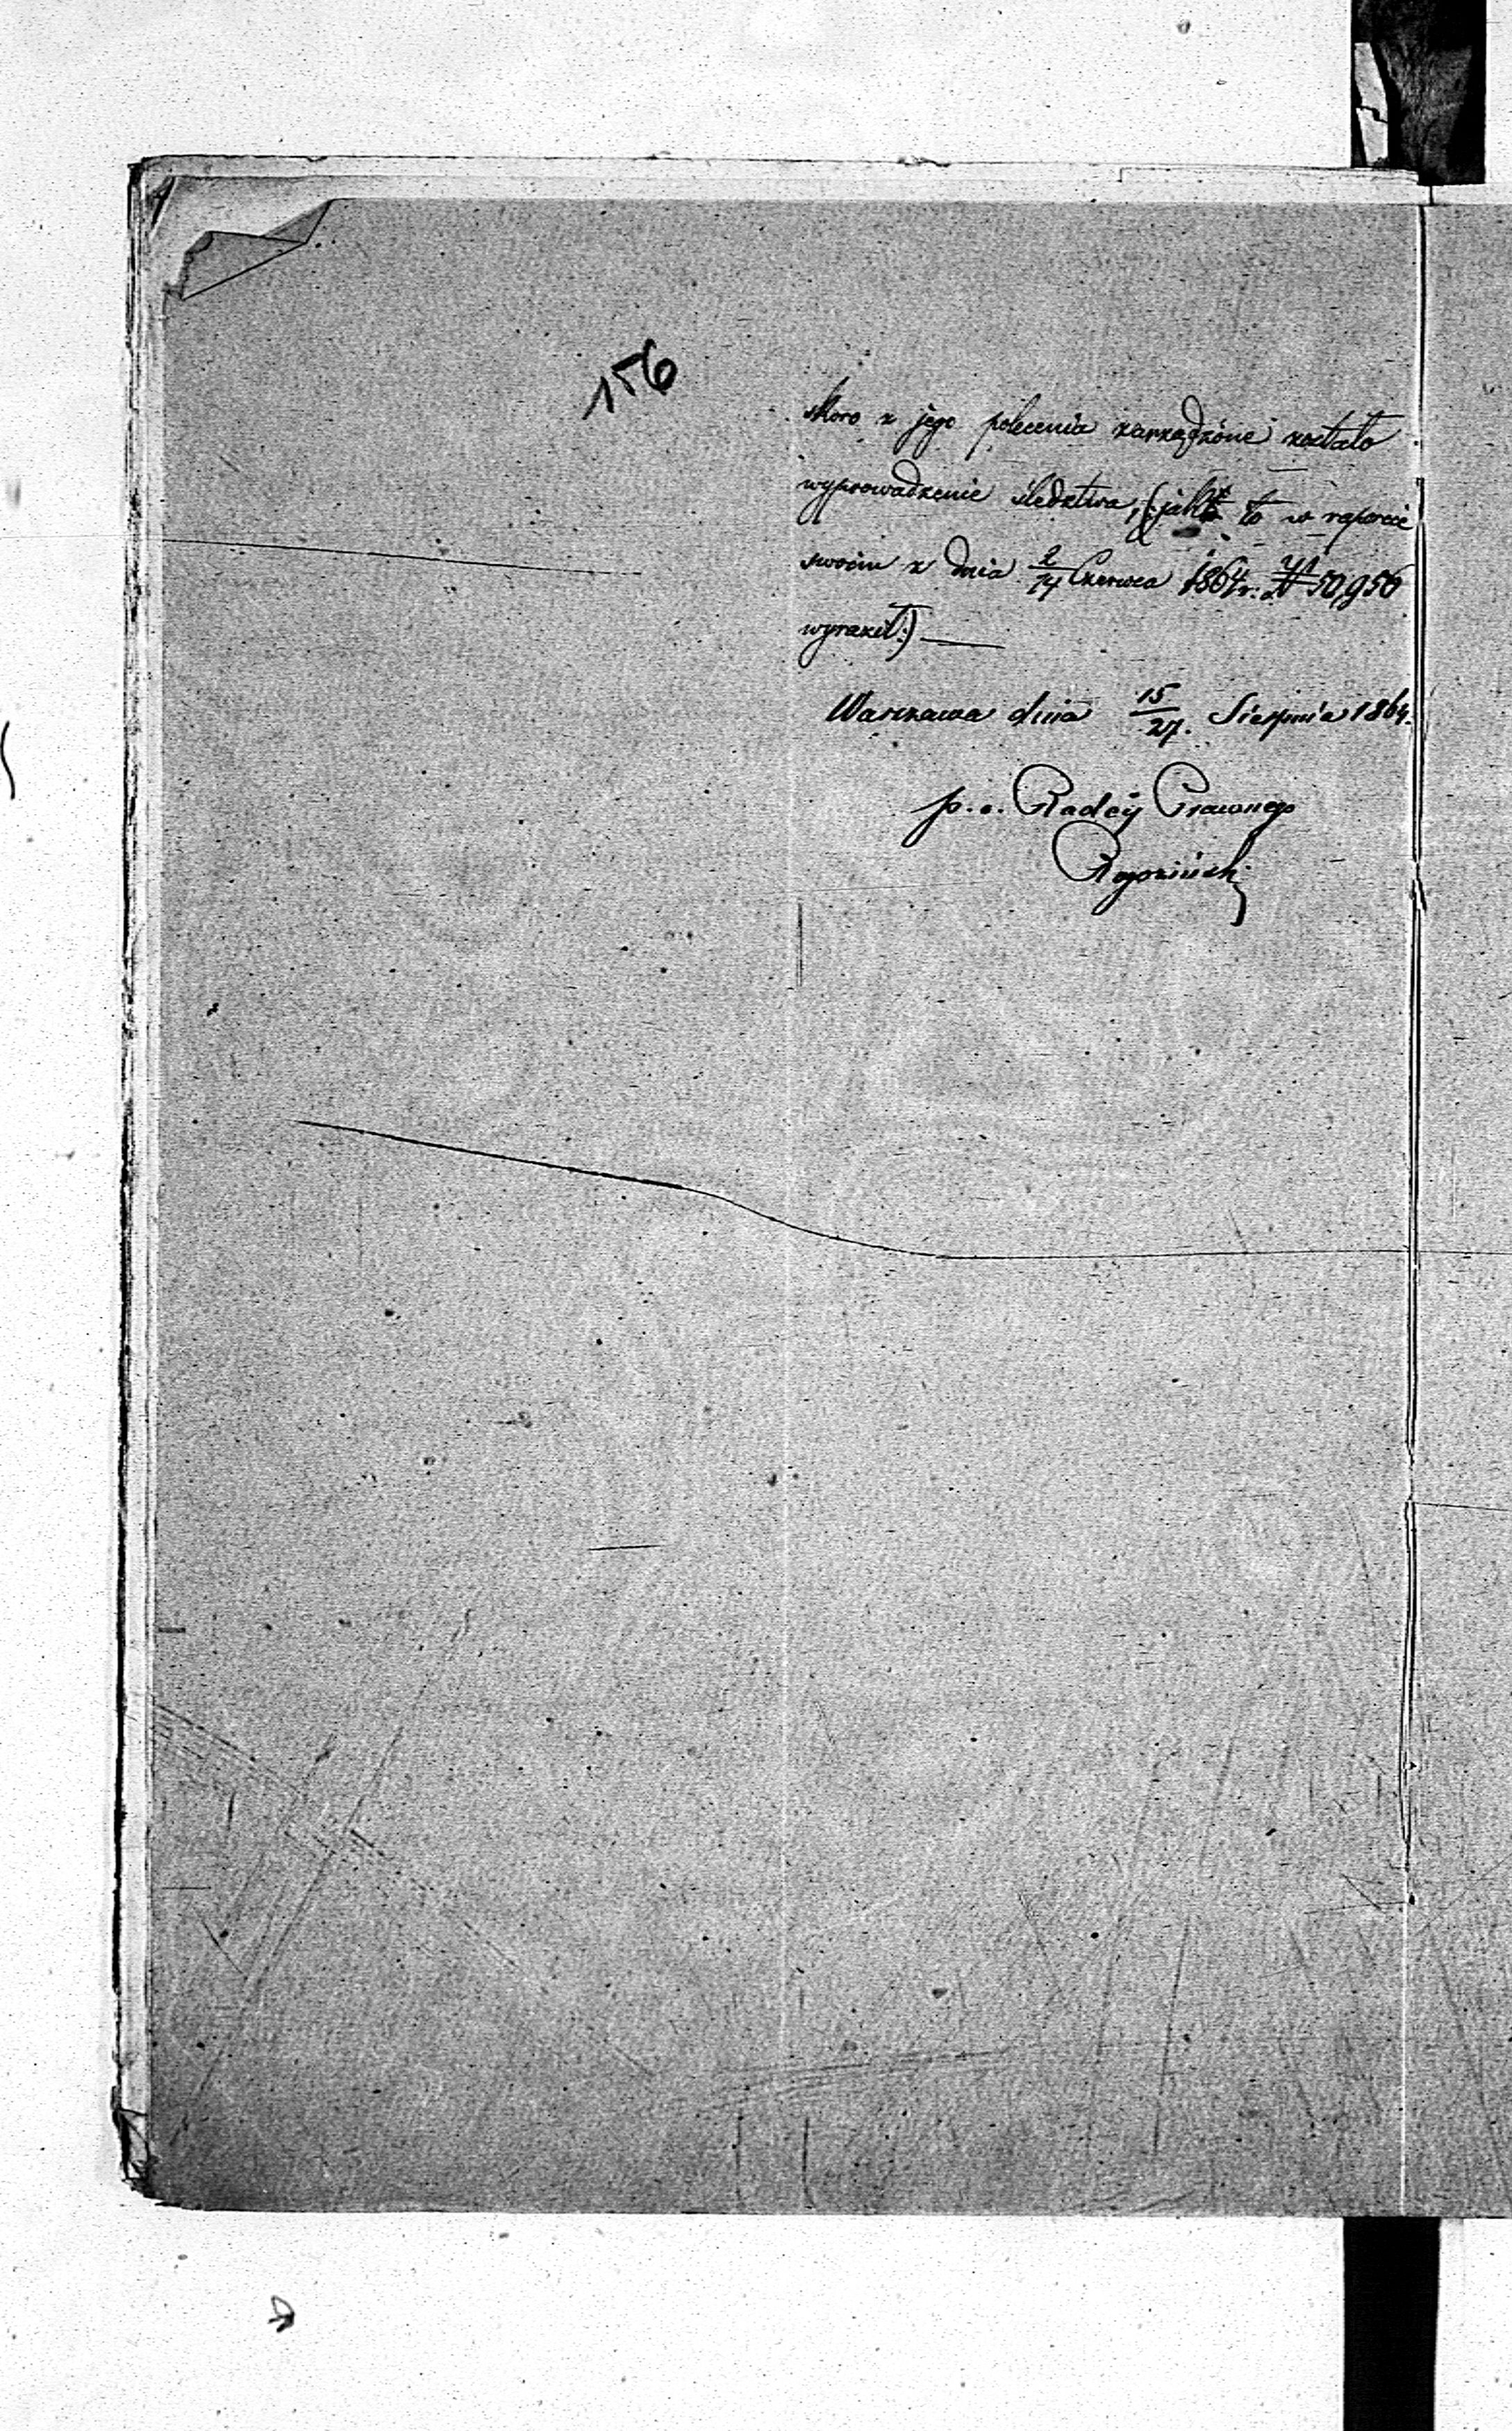 156
skoro z jego polecenia zarządzone zostało
wyprowadzenie śledztwa, (:jak to w raporcie
swoim z dnia 2/14 Czerwca 1864 r. N 50,956
wyraził:)
Warszawa dnia 15/27. Sierpnia 1864.
p.o. Radcy Prawnego
Rogoziński